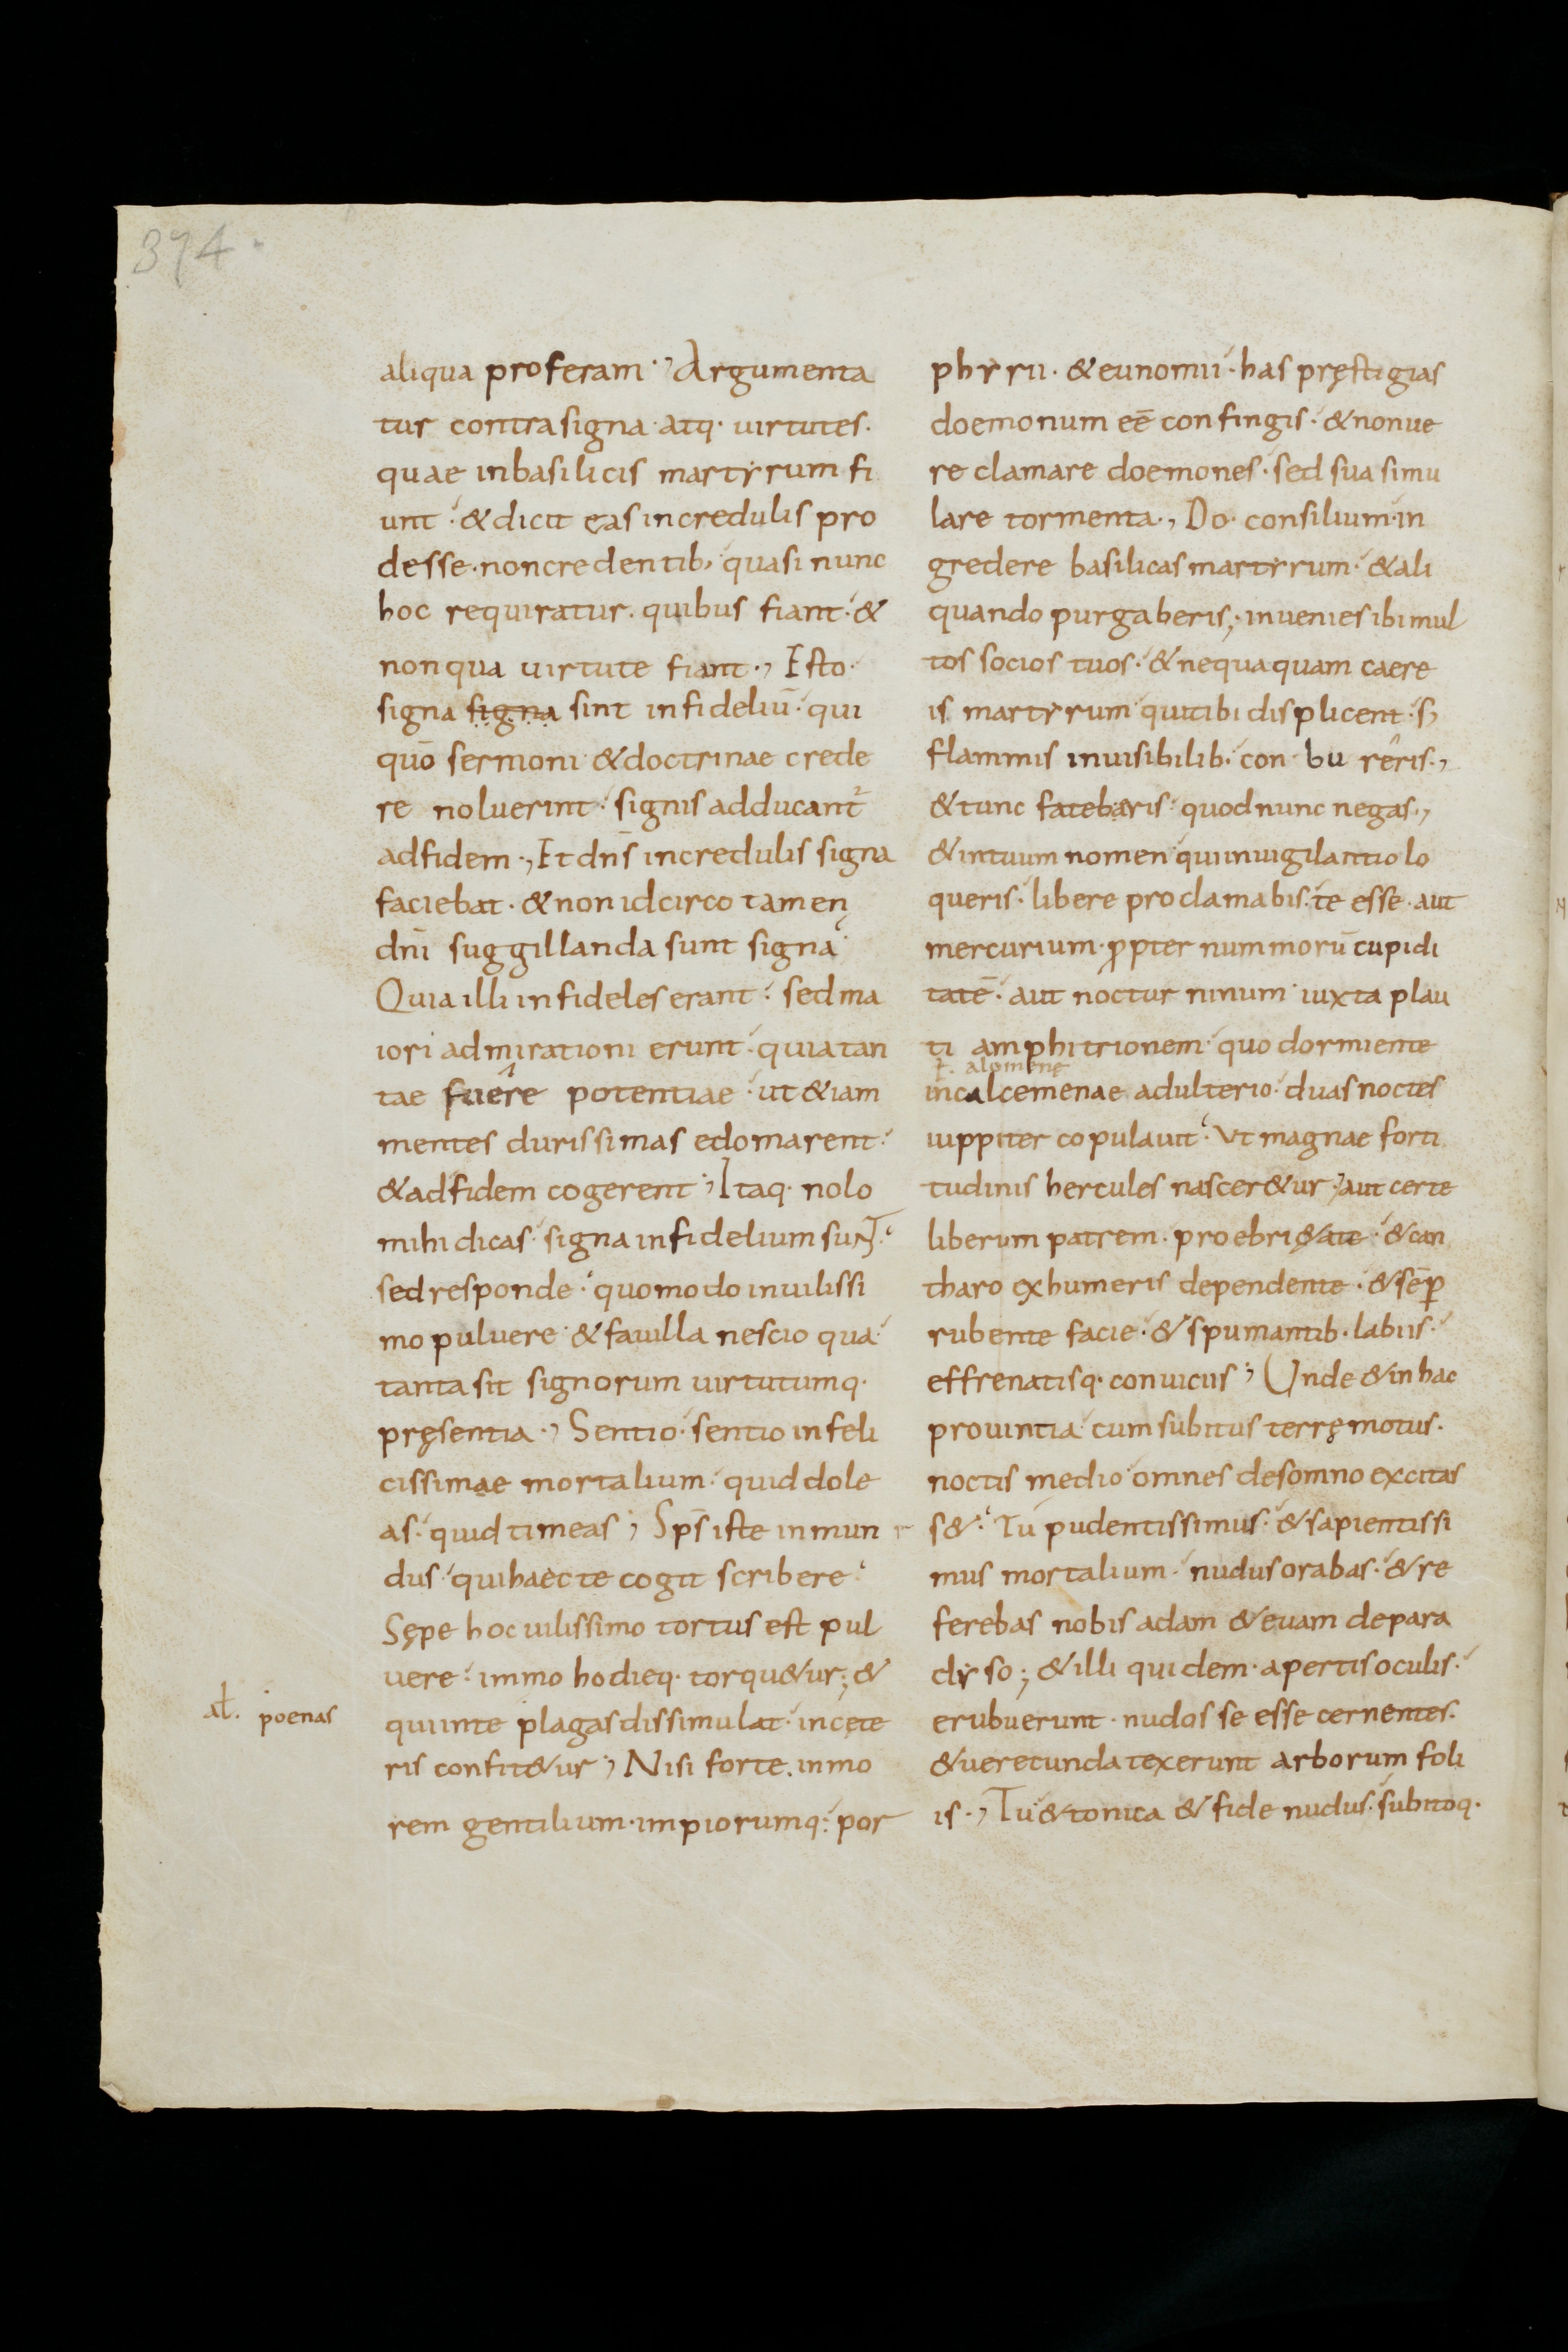 374
aliqua proferam·, Argumenta
tur contra signa· atq· uirtutes·
quae inbasilicis martyrum fi
unt· & dicit ęas incredulis pro
desse· noncredentib, quasi nunc
hoc requiratur· quibus fiant· &
non qua uirtute fiant·, Esto·
signa signa sint infideliū· qui
quō sermoni & doctrinae crede
re noluerint· signis adducant᷑
adfidem·, Et dn̄s incredulis signa
faciebat· & non idcirco tamen
dn̄i suggillanda sunt signa·
Quia illi infideles erant· sed ma
iori admirationi erunt· quia tan
tae fuêre potentiae· ut & iam
mentes durissimas edomarent·
& adfidem cogerent·, Itaq· nolo
mihi dicas· signa infidelium sunt·
sed responde· quomodo in uilissi
mo puluere· & fauilla nescio qua·
tanta sit signorum uirtutumq·
pręsentia·, Sentio· sentio infeli
cissimae mortalium· quid dole
as· quid timeas·, Sp̄s iste inmun
dus· qui haec te cogit scribere·
Sępe hoc uilissimo tortus est pul
uere· immo hodieq· torqu&ur; &
al. poenas
qui inte plagas dissimulat· incęte
ris confit&ur·, Nisi forte· inmo
rem gentilium· impiorumq· por
phyrii· & eunomii· has pręstigias
doemonum eē confingis· & non ue
re clamare doemones· sed sua simu
lare tormenta·, Do· consilium· in
gredere basilicas martyrum· & ali
quando purgaberis; inuenies ibi mul
tos socios tuos· & nequaquam caere
is martyrum qui tibi displicent· s,
flammis inuisibilib· con bu rêris·,
& tunc fatebaris· quod nunc negas·,
& in tuum nomen qui in uigilantio lo
queris· libere proclamabis· te esse· aut
mercurium· ꝓpter nummorū cupidi
tatē· aut nocturninum· iuxta plau
ti amphitrionem· quo dormiente
ł. alomenę
in calcemenae adulterio· duas noctes
iuppiter copulauit· Vt magnae forti
tudinis hercules nascer&ur·, aut certe
liberum patrem· pro ebri&ate· & can
tharo ex humeris dependente· & sēp
rubente facie· & spumantib· labiis·
effrenatisq· conuiciis·, Unde & in hac
prouintia· cum subitus terrę motus·
noctis medio· omnes desomno excitas
s&· Tu pudentissimus· & sapientissi
mus mortalium· nudus orabas· & re
ferebas nobis adam & euam de para
dyso; & illi quidem· apertis oculis·
erubuerunt· nudos se esse cernentes·
& uerecunda texerunt arborum foli
is·, Tu & tonica & fide nudus· subitoq·